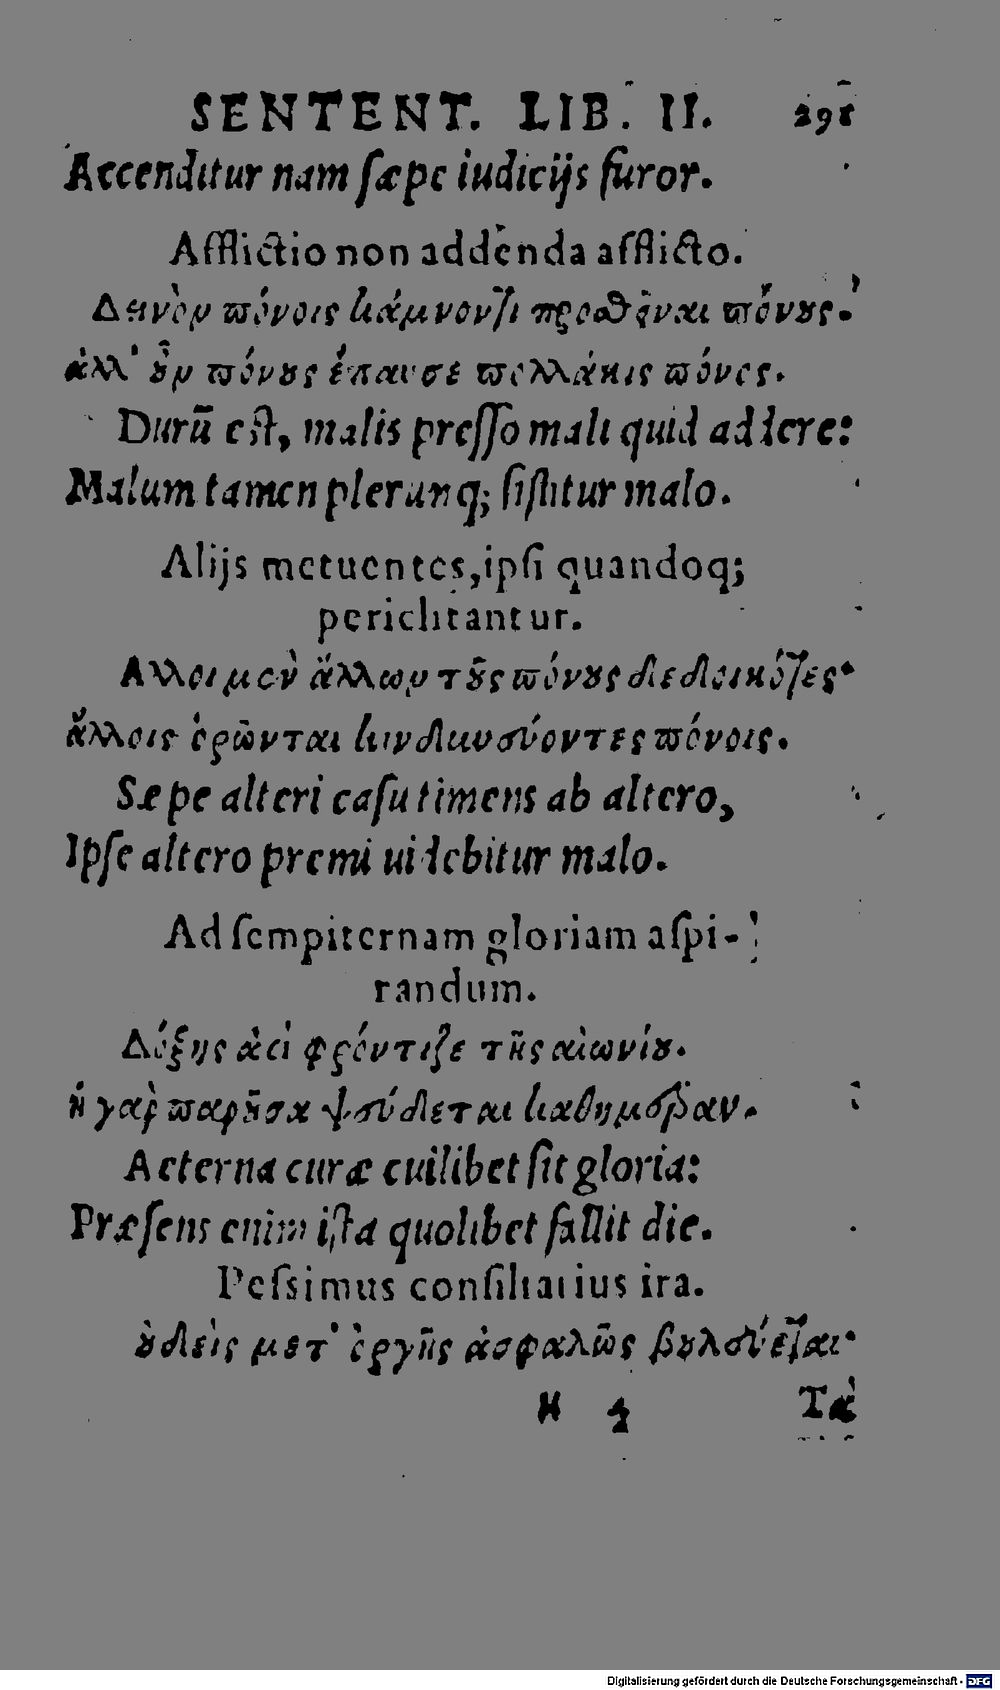 SENTENT. LIB. II. 298
Accenditur nam sæpe iudicijs furor.
Afflictio non addenda afflicto.
Δεινὸν πόνοις κάμνοντι προσθεῖναι πόνους.
ἀλλ' οὖν πόνους ἔπαυσε πολλάκις πόνος.
Durū est, malis presso mali quid addere:
Malum tamen plerunq; sistitur malo.
Alijs metuentes, ipsi quandoq;
periclitantur.
Αλλοι μὲν ἄλλων τοῦς πόνους δεδοικότες
ἄλλοις ὁρῶνται κινδυνεύοντες πόνοις.
Sæpe alteri casu timens ab altero,
Ipse altero premi uidebitur malo.
Ad sempiternam gloriam aspi-
randum.
Δόξης ἀεὶ φρόντιζε τῆς αἰωνίου.
ἡ γὰρ παροῦσα ψεύδεται καθημέραν.
Aeterna curæ cuilibet sit gloria:
Præsens enim ista quolibet fallit die.
Pessimus consiliarius ira.
οὐδεὶς μετ' ὀργῆς ἀσφαλῶς βουλεύεται
Τὰ
Digitalisierung gefördert durch die Deutsche Forschungsgemeinschaft - DFG